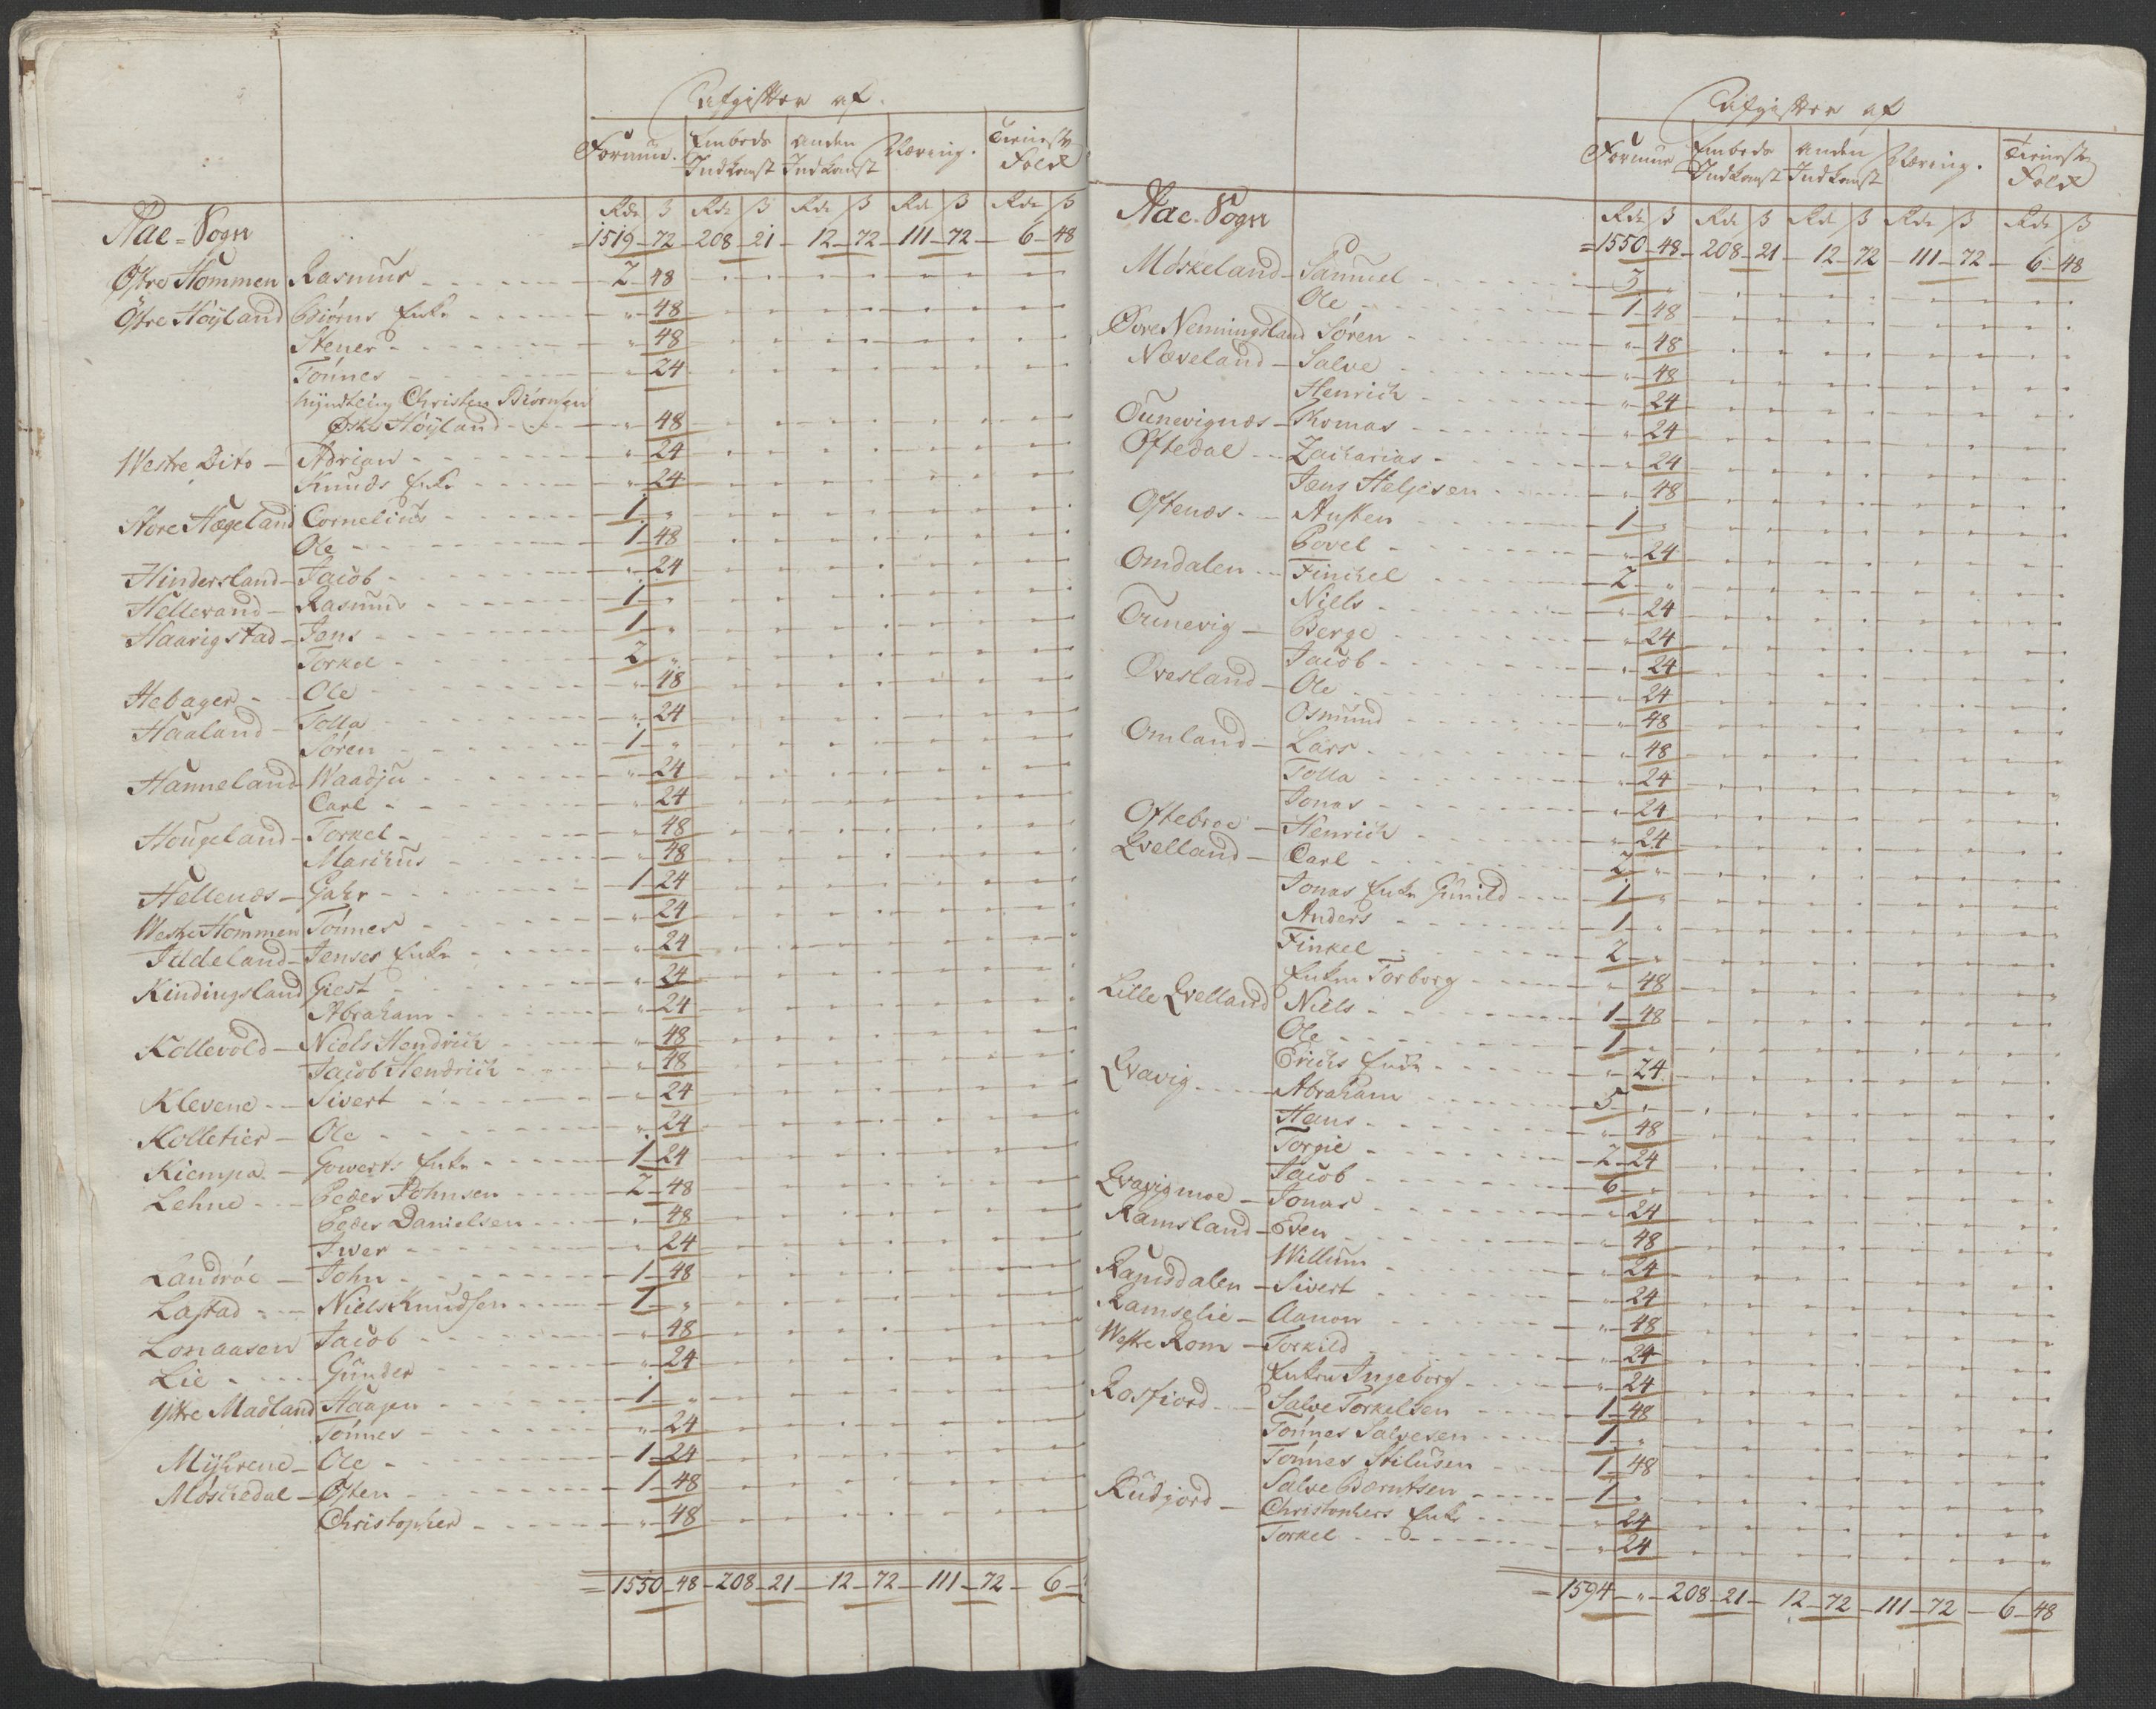 Afgifter af
Formue. Embeds Indkomst Anden Indkomst Næring. Tieneste Folk
Rdr ß Rdr ß Rdr ß Rdr ß Rdr ß
Aae-Sogn = 1519-72-208-21-12-72-111-72-6-48
Østre Hommen Rasmus 2-48
Østre Höyland Biørns Enke "-48
Stener "-48
Tönnes "-24
Myndtling Christen Biørnsen
Østre Höyland "-48
Westre Dito Adrian "-24
Knuds Enke "-24
Store Hægeland Cornelius 1-"
Ole 1-48
Hindersland Jacob "-24
Hellevand Rasmus 1-"
Haarigstad Jens 1-"
Torkel 2-"
Hebager Ole "-48
Haaland Tolla "-24
Søren 1-"
Hanneland Waadju "-24
Carl "-24
Hougeland Torkel "-48
Marchus "-48
Hellenæs Gahr 1-24
Westre Hommen Tönnes "-24
Iddeland Jenses Enke "-24
Kindingsland Giest "-24
Abraham "-24
Kollevold Niels Hendrich "-48
Jacob Hendrich "-48
Klevene Sivert "-24
Kolletier Ole "-24
Kiempa Gowerts Enke 1-24
Lehne Peder Johnsen 2-48
Peder Danielsen "-48
Iwer "-24
Landröe John 1-48
Lastad Niels Knudsen 1-"
Lonaasen Jacob "-48
Lie Gunder "-24
Ystre Madland Haagen 1-"
Tönnes "-24
Myhrene Ole 1-24
Möschedal Østen 1-48
Christopher "-48
= 1550-48-208-21-12-72-111-72-6-
Afgifter af
Formue Embeds Indkomst Anden Indkomst Næring. Tieneste Folk
Rdr ß Rdr ß Rdr ß Rdr ß Rdr ß
Aae-Sogn = 1550-48-208-21-12-72-111-72-6-48
Möskeland Samuel 3-"
Ole 1-48
Øvre Nenningsland Søren "-48
Næveland Salve "-48
Henrich "-24
Ounevignæs Thomas "-24
Oftedal Zacharias "-24
Jens Heljesen "-48
Oftenæs Austen 1-"
Povel "-24
Omdalen Finchel 2-"
Niels "-24
Ounevig Berge "-24
Jacob "-24
Øvesland Ole "-24
Osmund "-48
Omland Lars "-48
Tolla "-24
Jonas "-24
Oftebroe Henrich "-24
Qvelland Carl 2-"
Jonas Enke Gunild 1-"
Anders 1-"
Finkel 2-"
Enken Torborg "-48
Lille Qvelland Niels 1-48
Ole 1-"
Erichs Enke "-24
Qvavig Abraham 5-"
Hans "-48
Torgie 2-24
Jacob 6-"
Qvavigmoe Jonas "-24
Ramsland Even "-48
Willum "-24
Ramsdalen Sivert "-24
Ramselie Aanon "-48
Westre Rom Torkild "-24
Enken Ingeborg "-24
Rosfiord Salve Torkelsen 1-48
Tönnes Salvesen 1-"
Tönnes Stilusen 1-48
Salve Berntsen 1-"
Rudjord Christophers Enke "-24
Torkel "-24
= 1594-"-208-21-12-72-111-72-6-48